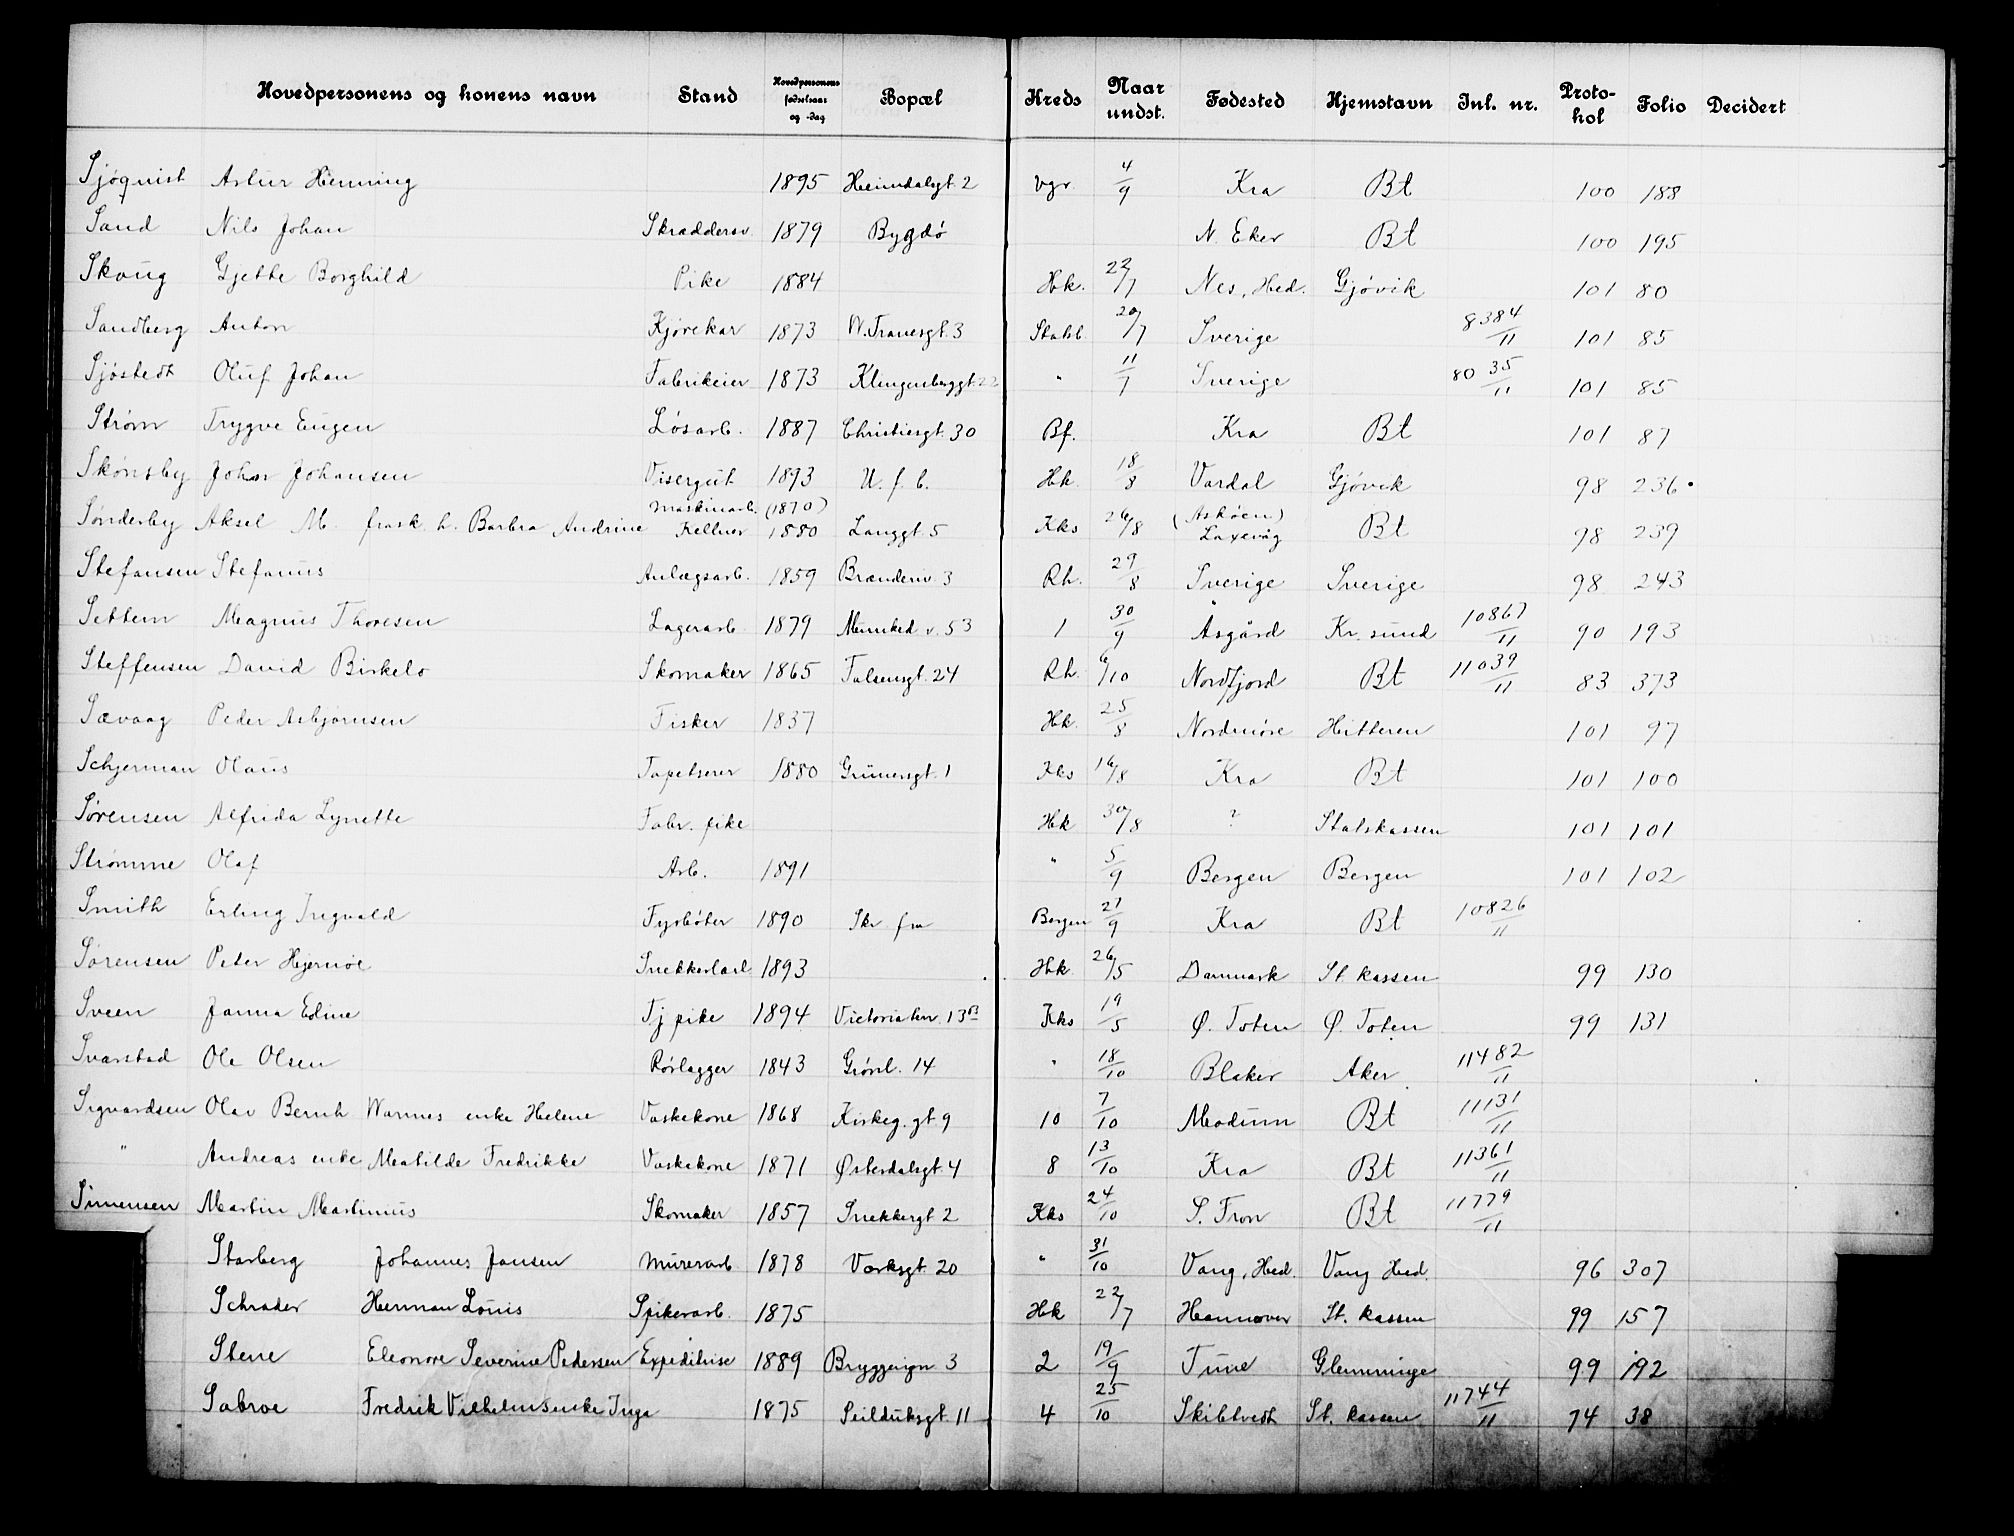 Hovedpersonens og konens navn Stand Hovedpersonens fødselsaar og -dag Bopæl Kreds Naar undst. Fødested Hjemstavn Inl. nr. Protokol Folio Decidert
Sjøquist Artur Henning 1895 Heimdalsgt. 2 Vgr. 4/9 Kra Bt 100 188
Sand Nils Johan Skræddersv. 1879 Bygdø N. Eker Bt 100 195
Skoug Gjethe Borghild Pike 1884 Hk. 22/7 Nes, Hed. Gjøvik 101 80
Sandberg Anton Kjørekar 1873 W. Tranesgt. 3 Statsb. 20/7 Sverige 8384/11 101 85
Sjøstedt Oluf Johan Fabrikeier 1873 Klingenberggt. 22 " 11/7 Sverige 8035/11 101 85
Strøm Trygve Eugen Løsarb. 1887 Christiesgt. 30 Bf. Kra Bt 101 87
Skønsby Johan Johansen Visergut 1893 U. f. b. Hk. 18/8 Vardal Gjøvik 98 236
Sønderby Aksel M. frask. h. Barbra Andrine Maskinarb. Kellner (1870) 1880 Langgt. 5 Kks 26/8 (Askøen) Laxevåg Bt 98 239
Stefansen Stefanus Anlægsarb. 1859 Brænderiv. 3 Rh. 29/8 Sverige Sverige 98 243
Settem Magnus Thoresen Lagerarb. 1879 Munked. v. 53 1 30/9 Åsgård Kr. sund 10867/11 90 193
Steffensen David Birkelo Skomaker 1865 Falsensgt. 24 Rh. 6/10 Nordfjord Bt 11039/11 83 373
Sævaag Peder Asbjørnsen Fisker 1837 Hk. 25/8 Nordmøre Hitteren 101 97
Schjerman Olaus Tapetserer 1880 Grünersgt. 1 Kks 16/8 Kra Bt 101 100
Sørensen Alfrida Lynette Fabr. pike Hk 30/8 ? Statskassen 101 101
Strømme Olaf Arb. 1891 " 5/9 Bergen Bergen 101 102
Smith Erling Ingvald Fyrbøter 1890 Skr fra Bergen 21/9 Kra Bt 10826/11
Sørensen Peter Hjernøe Snekkerlærl 1893 Hk 26/5 Danmark St. kassen 99 130
Sveen Janna Edine Tj pike 1894 Victoria ter. 13 Kks 19/5 Ø. Toten Ø. Toten 99 131
Svarstad Ole Olsen Rørlægger 1843 Grønl. 14 " 18/10 Blaker Aker 11482/11
Sigvardsen Olav Bernh Warnes enke Helene Vaskekone 1868 Kirkeg. gt 9 10 7/10 Modum Bt 11131/11
" Andreas enke Matilde Fredrikke Vaskekone 1871 Østerdalsgt. 4 8 13/10 Kra Bt 11361/11
Simensen Martin Martinius Skomaker 1857 Snekkergt 2 Kks 24/10 S. Fron Bt 11779/11
Starberg Johannes Jansen Murerarb 1878 Verksgt. 20 " 31/10 Vang, Hed. Vang Hed. 96 307
Schrader Herman Louis Spikerarb. 1875 Hk 22/7 Hannover St. kassen 99 157
Stene Eleonore Severine Pedersen Expeditrise 1889 Bryggerign 3 2 19/9 Tune Glemminge 99 192
Sabroe Fredrik Vilhelms enke Inga 1875 Seilduksgt. 11 4 25/10 Skibtvedt St. kassen 11744/11 74 38